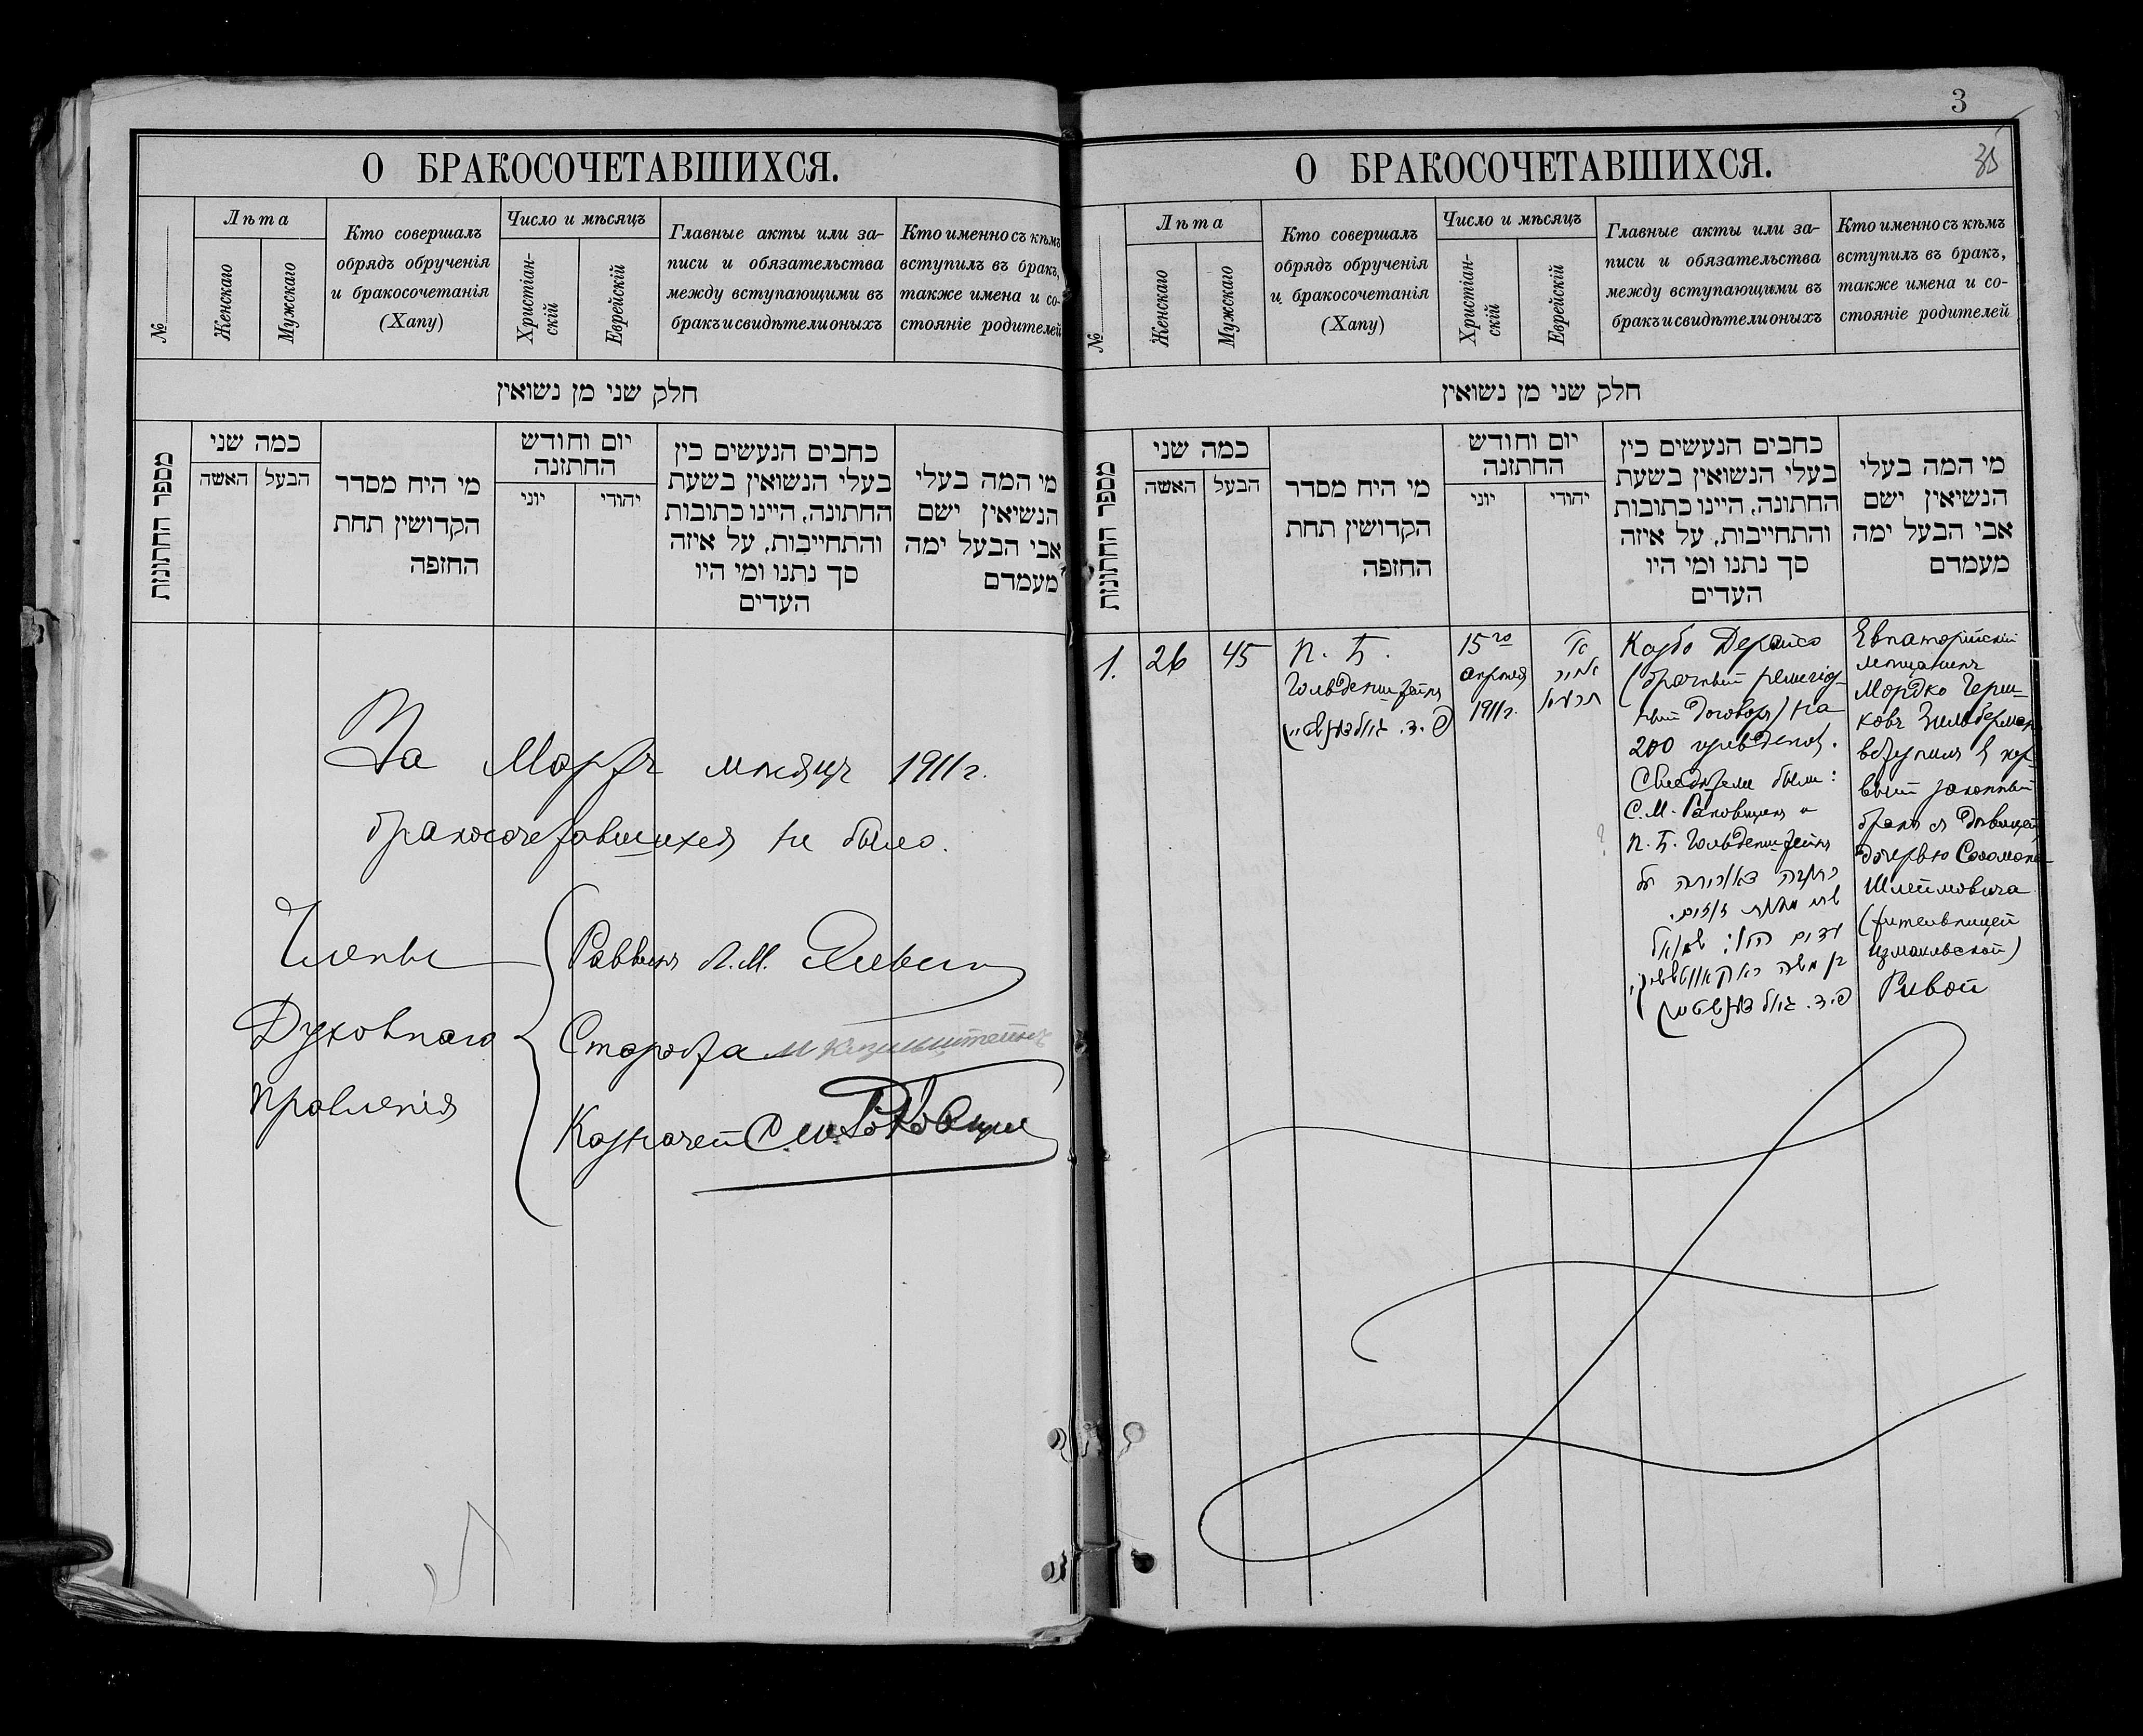 О БРАКОСОЧЕТАВШИХСЯ.
№
Лѣта
Женскаго
Мужскаго
Кто совершалъ
обрядъ обрученія
и бракосочетанія
(Хапу)
Число и мѣсяцъ
Христіан-
скій
Еврейскій
Главные акты или за-
писи и обязательства
между вступающими въ
бракъ и свидѣтели оныхъ
Кто именно съ кѣмъ
вступилъ въ бракъ,
также имена и со-
стояніе родителей
חלק שני מן נשואין
מספר החתונות
כמה שני
האשה
הבעל
מי היח מסדר
הקדושין תחת
החזפה
יום וחודש
החתזנה
יוני
יהודי
כחבים הנעשים כין
בעלי הנשואין בשעת
החתונה, היינו כתובות
והתחייבות, על איזה
סך נתנו ומי היו
העדים
מי המה בעלי
הנשיאין ישם
אבי הבעל ימה
מעמדם
За Мартъ мѣсяцъ 1911 г.
бракосочетавшихся не было.
Члены
Духовнаго
правленія
Раввинъ
Староста
Казначей
3
35
О БРАКОСОЧЕТАВШИХСЯ.
№
Лѣта
Женскаго
Мужскаго
Кто совершалъ
обрядъ обрученія
и бракосочетанія
(Хапу)
Число и мѣсяцъ
Христіан-
скій
Еврейскій
Главные акты или за-
писи и обязательства
между вступающими въ
бракъ и свидѣтели оныхъ
Кто именно съ кѣмъ
вступилъ въ бракъ,
также имена и со-
стояніе родителей
חלק שני מן נשואין
מספר החתונות
כמה שני
האשה
הבעל
מי היח מסדר
הקדושין תחת
החזפה
יום וחודש
החתזנה
יוני
יהודי
כחבים הנעשים כין
בעלי הנשואין בשעת
החתונה, היינו כתובות
והתחייבות, על איזה
סך נתנו ומי היו
העדים
מי המה בעלי
הנשיאין ישם
אבי הבעל ימה
מעמדם
1.
26
45
П. Б.
Гольденштейнъ
15го
апрѣля
1911 г.
תרעא
(брачный религіоз-
ный договоръ) на
200 гульденов.
Свидѣтели были:
С. М. Раковщикъ и
П. Б. Гольденштейнъ
Евпаторійскій
мѣщанинъ
Мордко Герш-
ковъ Зильберманъ
вступилъ въ пер-
вый законный
бракъ съ дѣвицей
дочерью Соломона
Шлеймовича
(жительницей
Измаильской)
Ривой